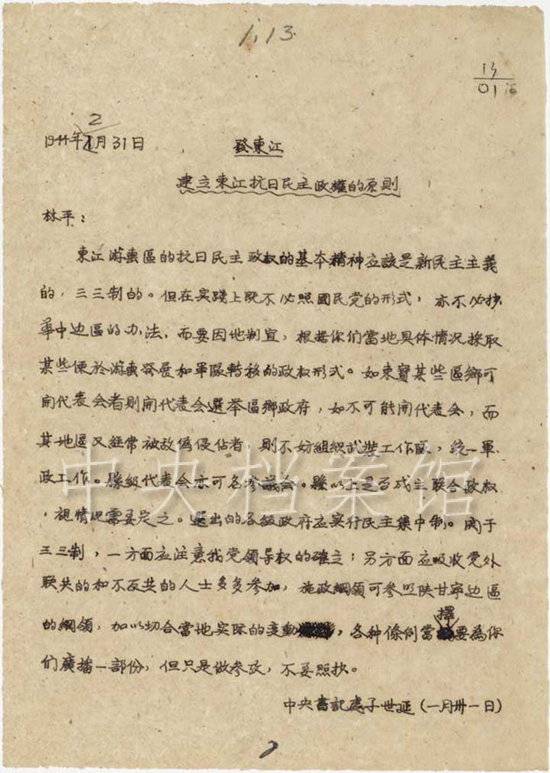 1.13
13
01
2
1944年1月31日
發東江
建立東江抗日民主政權的原則
林平：
東江游击區的抗日民主政权的基本精神应該是新民主主義
的，三三制的。但在实踐上既不必照國民党的形式，亦不必抄
華中边區的办法，而要因地制宜，根据你们當地具体情况採取
某些便於游击發展和軍隊轉移的政权形式。如東寳某些區鄉可
開代表会者則開代表会選举區鄉政府，如不可能開代表会，而
其地區又經常被敌偽侵佔者，則不妨組織武装工作隊，统一軍
政工作。縣級代表会亦可名参議会。縣以上是否成立联合政权
，視情况需要定之。選出的各級政府应实行民主集中制。関于
三三制，一方面应注意我党领导权的確立；另方面应吸收党外
联共的和不反共的人士多多参加，施政綱领可参照陕甘宁边區
的綱领，加以切合當地实际的变動，各种條例當擇要為你
们廣播一部份，但只是做参攷，不要照抄。
中央書記處子世延（一月卅一日）
中央档案馆